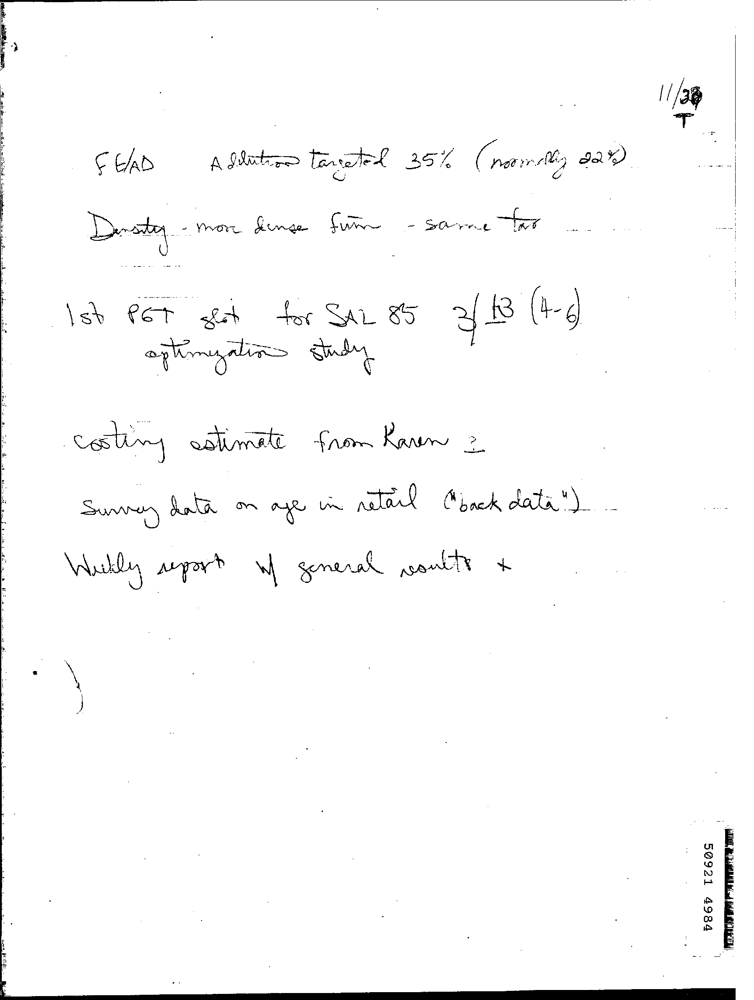 11/
T
A dilution targeted 35% (normally 22%)
Density - more dense firm - same tar
1st PGT slot for SAL 85 3/13 (4-6)
optimization study
costing estimate from Karen ?
Survey data on age in retail ("back data")
Weekly report w/ general results +
50921 4984